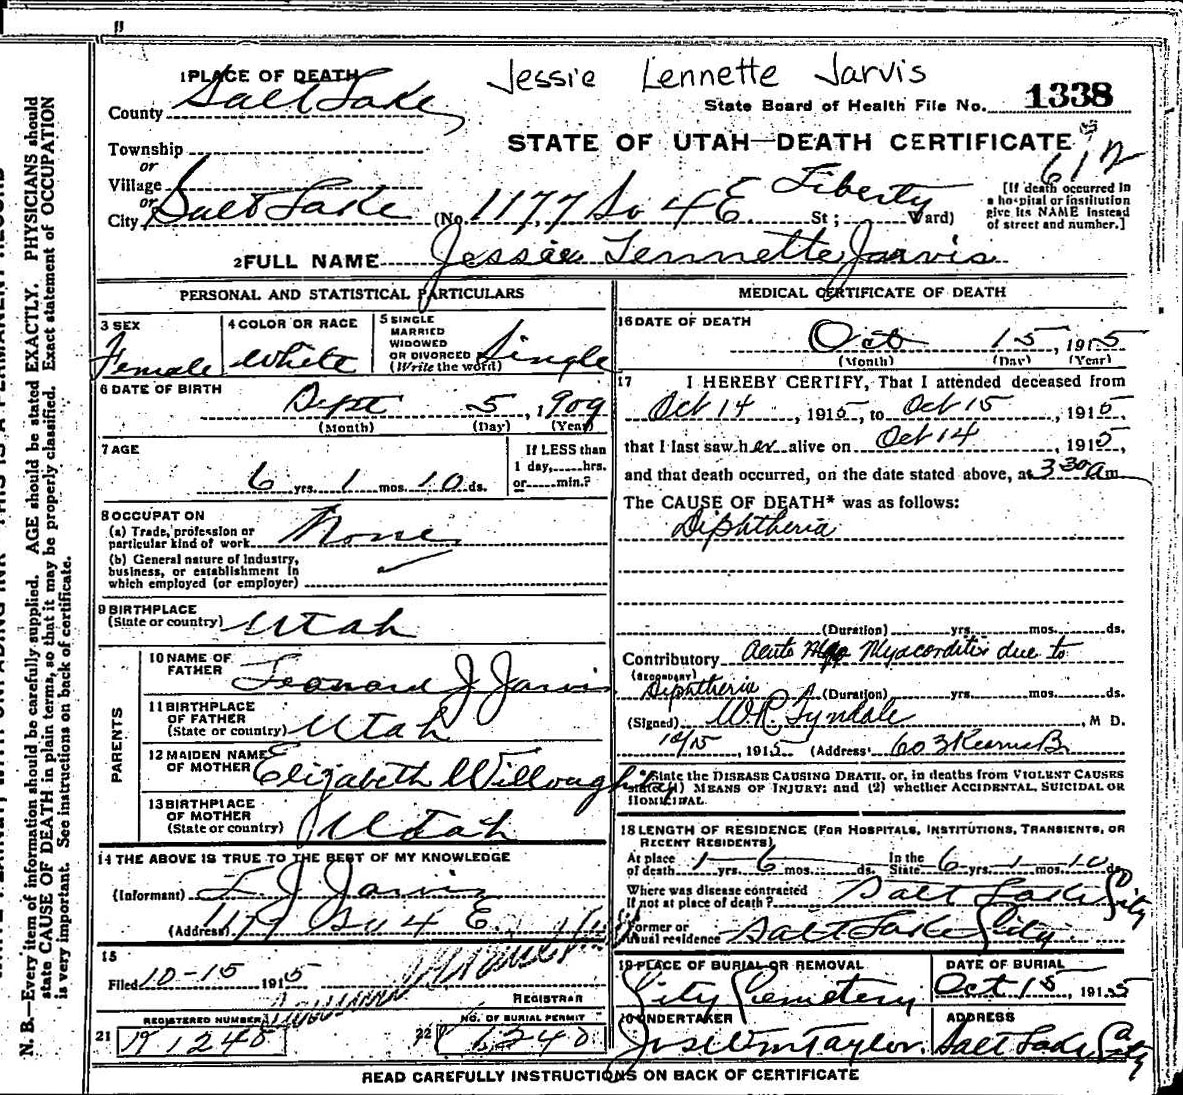 Jessie Lennette Jarvis
1 PLACE OF DEATH
County Salt Lake
State Board of Health File No. 1338
STATE OF UTAH—DEATH CERTIFICATE
612
Township
or
Village
or
City Salt Lake (No. 1177 So 4 E St; Liberty Ward)
[If death occurred in a hospital or institution give its NAME instead of street and number.]
2 FULL NAME Jessie Lennette Jarvis
PERSONAL AND STATISTICAL PARTICULARS
3 SEX Female
4 COLOR OR RACE White
5 SINGLE MARRIED WIDOWED OR DIVORCED (Write the word) Single
6 DATE OF BIRTH
Sept 5, 1909
(Month) (Day) (Year)
7 AGE
6 yrs. 1 mos. 10 ds.
If LESS than 1 day, hrs. or min.?
8 OCCUPATION
(a) Trade, profession or particular kind of work None
(b) General nature of industry, business, or establishment in which employed (or employer)
9 BIRTHPLACE (State or country) Utah
PARENTS
10 NAME OF FATHER Leonard J Jarvis
11 BIRTHPLACE OF FATHER (State or country) Utah
12 MAIDEN NAME OF MOTHER Elizabeth Willoughby
13 BIRTHPLACE OF MOTHER (State or country) Utah
14 THE ABOVE IS TRUE TO THE BEST OF MY KNOWLEDGE
(Informant) L. J. Jarvis
(Address) 1177 So 4 E.
15
Filed 10-15 1915
REGISTRAR
21 REGISTERED NUMBER 1248
22 NO. OF BURIAL PERMIT 1248
MEDICAL CERTIFICATE OF DEATH
16 DATE OF DEATH
Oct 15, 1915
(Month) (Day) (Year)
17 I HEREBY CERTIFY, That I attended deceased from
Oct 14, 1915, to Oct 15, 1915,
that I last saw her alive on Oct 14, 1915,
and that death occurred, on the date stated above, at 3 30 am
The CAUSE OF DEATH* was as follows:
Diphtheria
(Duration) yrs. mos. ds.
Contributory (SECONDARY) Acute Myocarditis due to
Diphtheria (Duration) yrs. mos. ds.
(Signed) W.R. Tyndale, M D.
10/15, 1915 (Address) 603 Kearns B
*State the DISEASE CAUSING DEATH, or, in deaths from VIOLENT CAUSES state (1) MEANS OF INJURY; and (2) whether ACCIDENTAL, SUICIDAL OR HOMICIDAL.
18 LENGTH OF RESIDENCE (FOR HOSPITALS, INSTITUTIONS, TRANSIENTS, OR RECENT RESIDENTS)
At place of death 1 yrs. 6 mos. ds. In the State 6 yrs. 1 mos. 10 ds.
Where was disease contracted if not at place of death? Salt Lake City
Former or usual residence Salt Lake City
19 PLACE OF BURIAL OR REMOVAL City Cemetery
DATE OF BURIAL Oct 15, 1915
20 UNDERTAKER Jos Wm Taylor
ADDRESS Salt Lake City
READ CAREFULLY INSTRUCTIONS ON BACK OF CERTIFICATE
N. B.—Every item of information should be carefully supplied. AGE should be stated EXACTLY. PHYSICIANS should
state CAUSE OF DEATH in plain terms, so that it may be properly classified. Exact statement of OCCUPATION
is very important. See instructions on back of certificate.